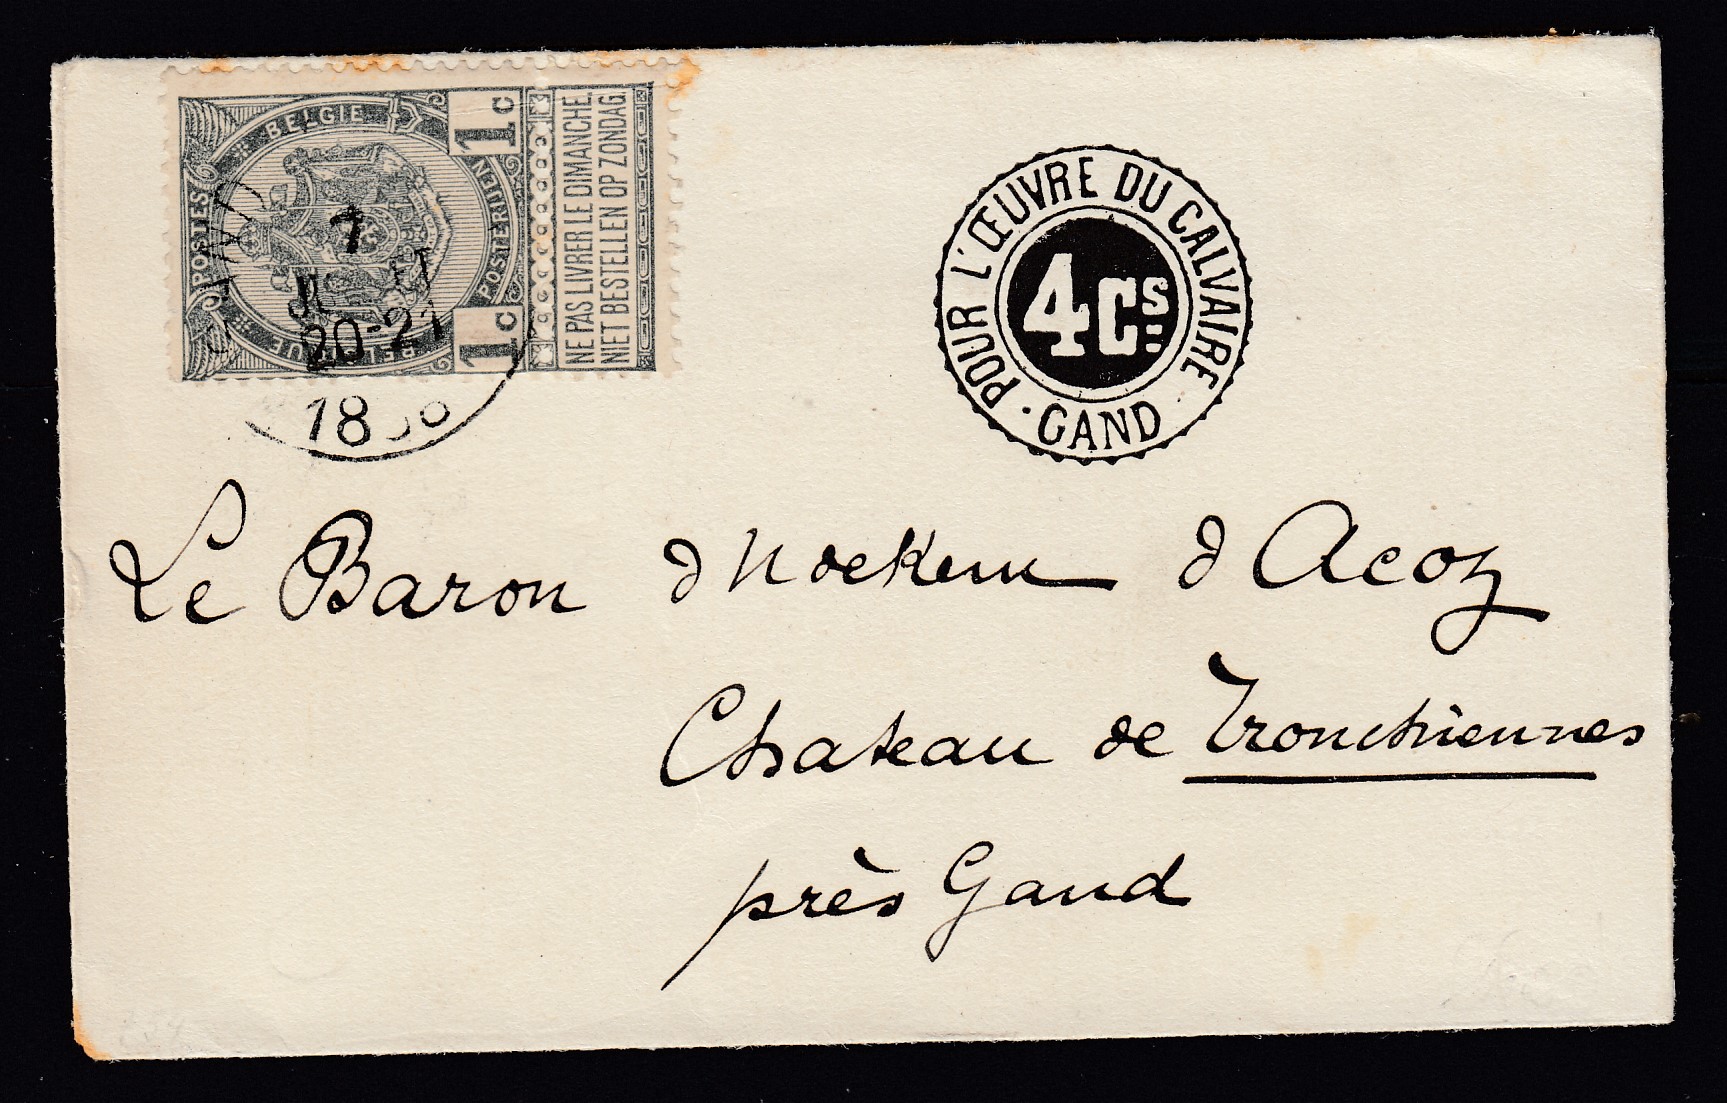 BELGIE
POSTES
POSTERIJEN
BELGIQUE
1c
1c
NE PAS LIVRER LE DIMANCHE
NIET BESTELLEN OP ZONDAG
7
20-21
POUR L'ŒUVRE DU CALVAIRE
4 Cs
· GAND ·
Le Baron d'Udekem d'Acoz
Chateau de Tronchiennes
près Gand